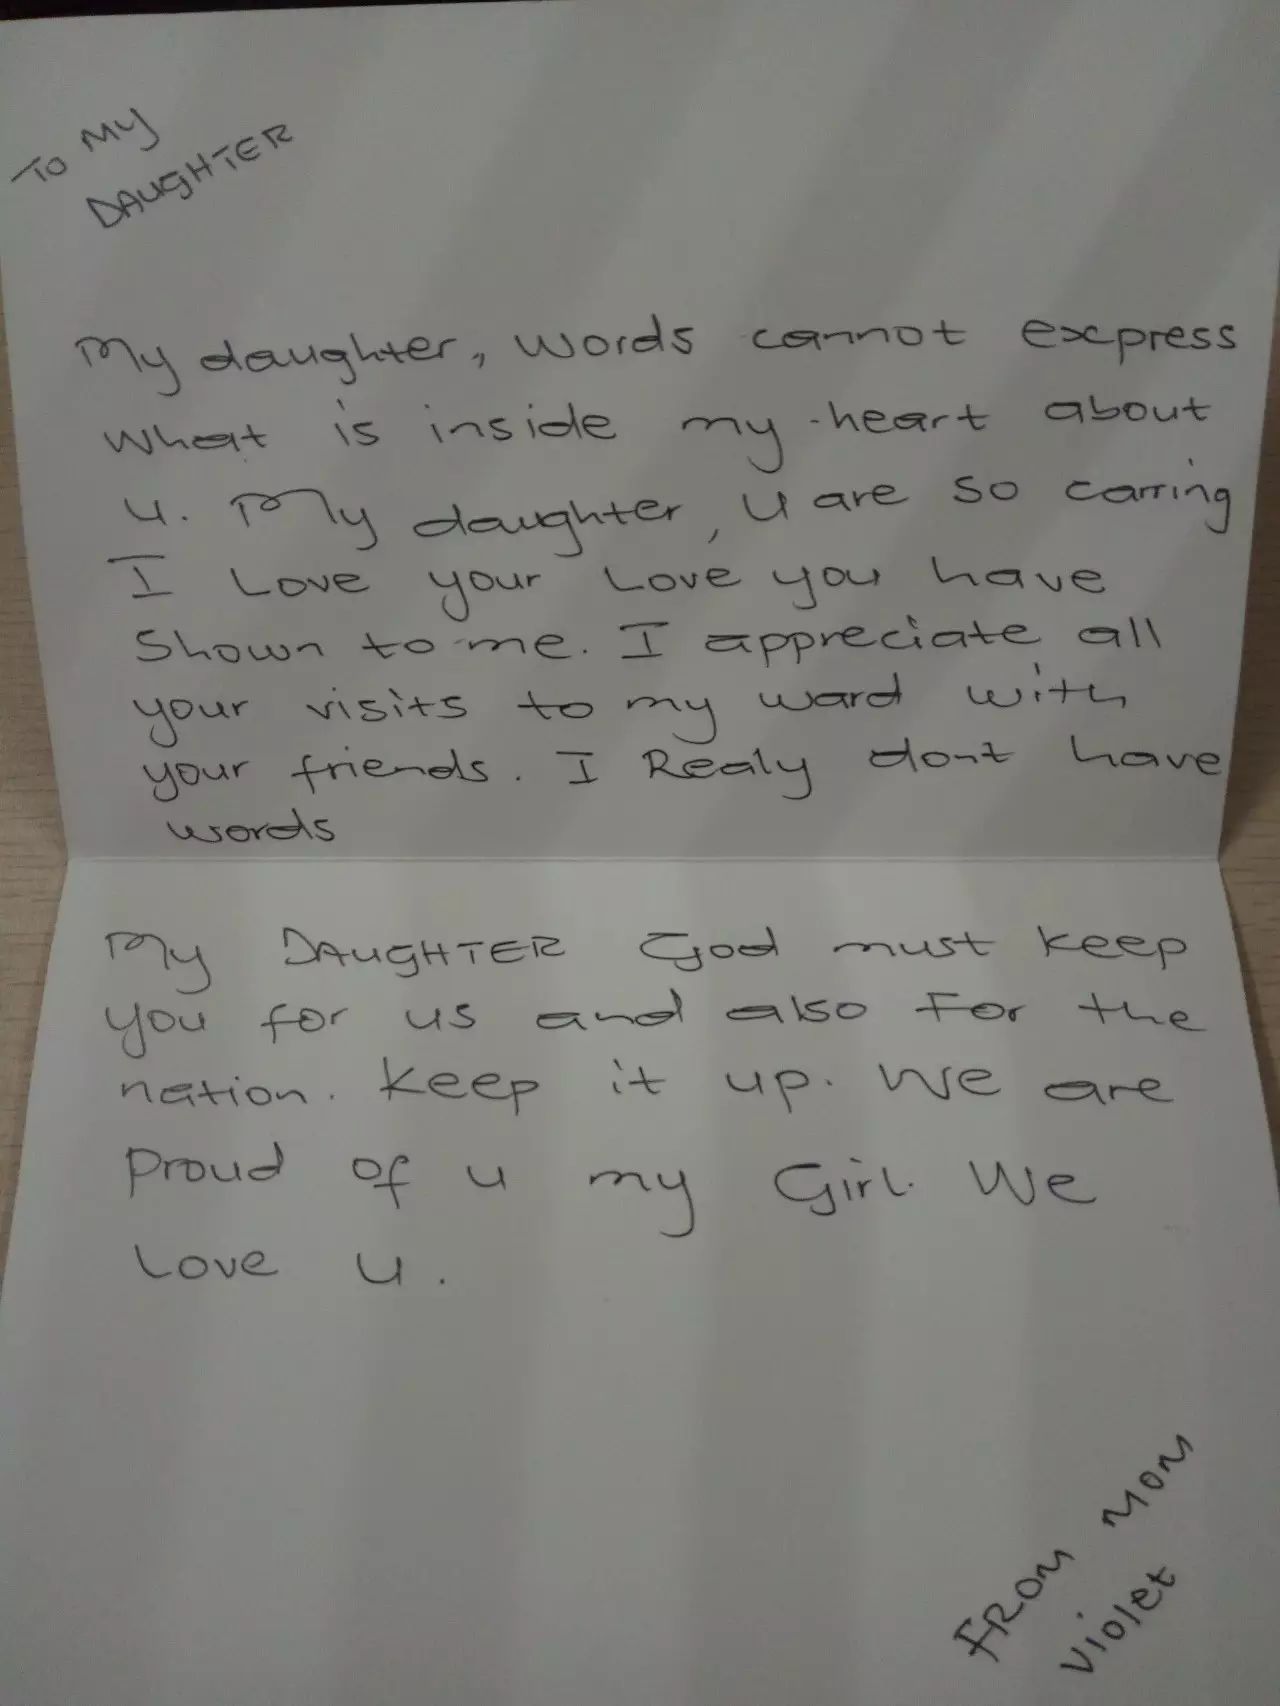 To My
DAUGHTER
My daughter, words cannot express
what is inside my heart about
u. My daughter, u are so carring
I Love your Love you have
Shown to me. I appreciate all
your visits to my ward with
your friends. I Realy dont have
words
My DAUGHTER God must keep
you for us and also For the
nation. Keep it up. We are
Proud of u my Girl. We
Love u.
FROM MOM
Violet